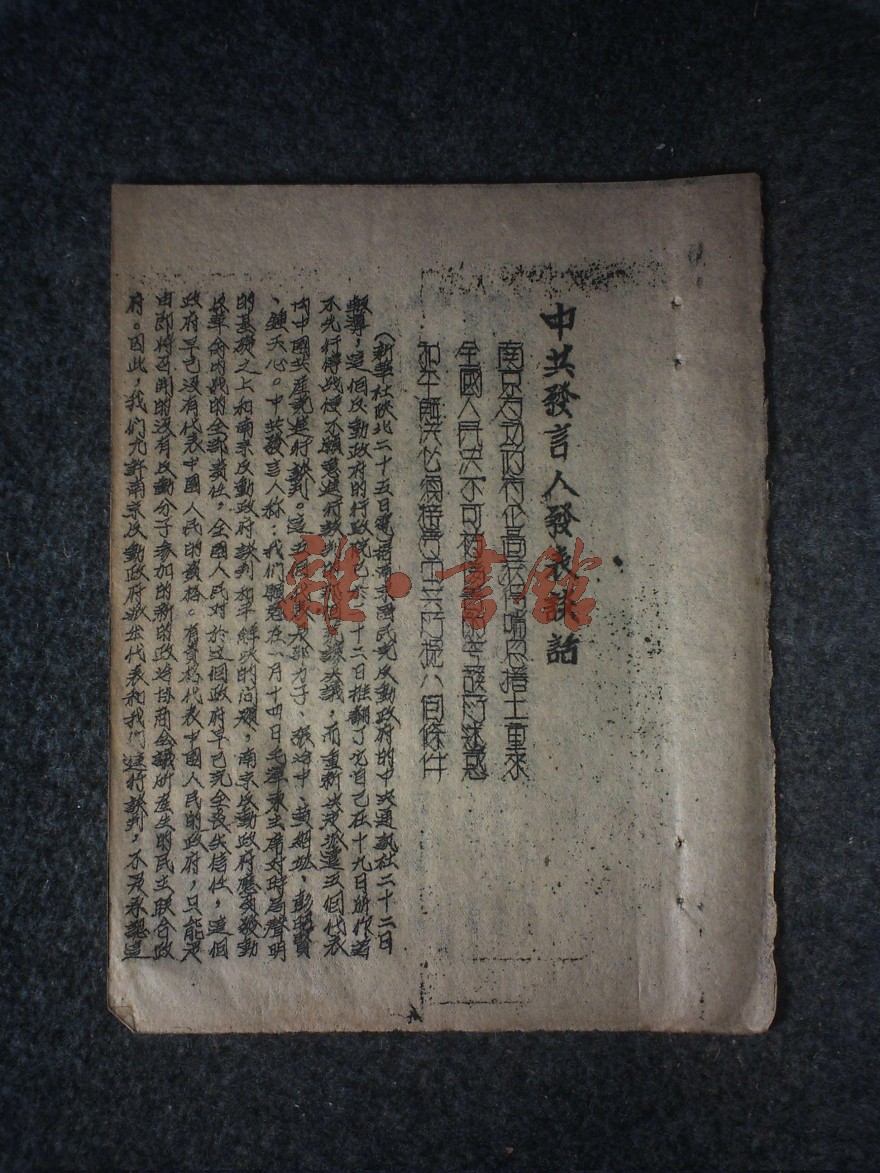 中共發言人發表談話
南京反动政府企圖获得喘息捲土重來
全國人民决不可被其虛假言詞所迷惑
和平解決必須接受中共所提八個條件
（新華社陝北二十五日電）据南京國民党反動政府的中央通訊社二十二日
報導，這個反動政府的行政院已於二十二日推翻了它自己在十九日所作的
不先行停战便不願意進行談判的決議，而重新決定派遣五個代表
向中國共產党進行談判。這五個代表为邵力子、張治中、黃紹竑、彭昭賢
、鍾天心。中共發言人称：我們願意在一月十四日毛澤東主席对時局聲明
的基礎之上和南京反動政府談判和平解決的问題，南京反動政府應負發動
反革命內战的全部責任，全國人民对於這個政府早已完全喪失信任，這個
政府早已沒有代表中國人民的資格。有資格代表中國人民的政府，只能是
由即將召開的沒有反動分子參加的新的政治協商会議所產生的民主联合政
府。因此，我們允許南京反動政府派出代表和我們進行談判，不是承認這
雜·書館